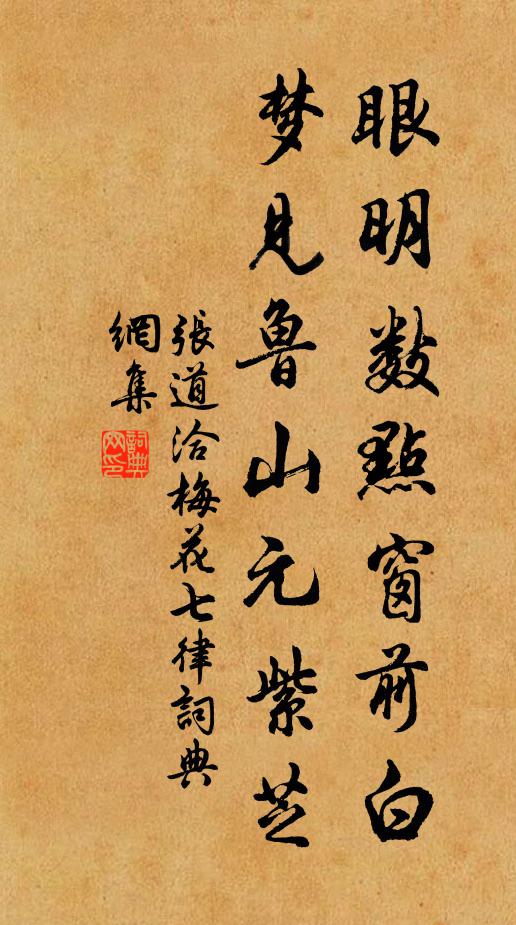 眼明数點窗前白
梦見鲁山元紫芝
張道洽梅花七律詞典
網集
詞典
网印